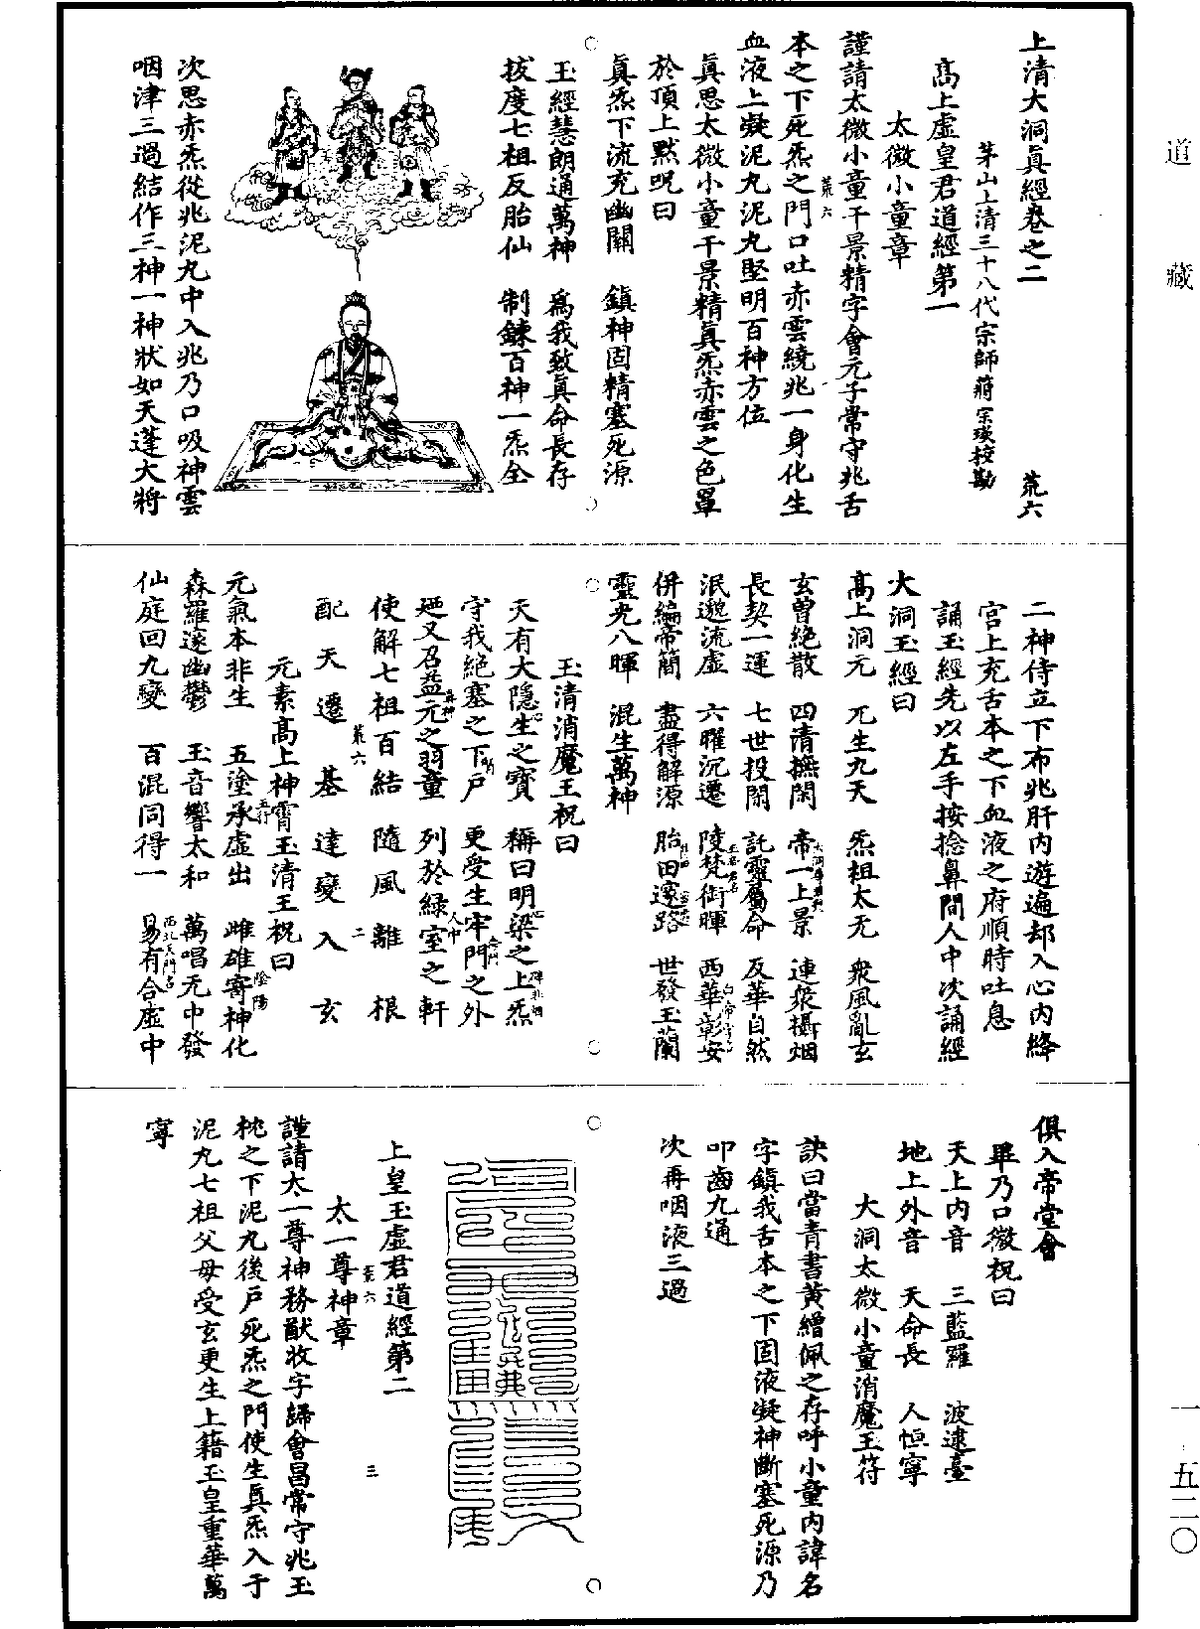 道藏
一·五二〇
上清大洞眞經卷之二 荒六
茅山上清三十八代宗師蔣宗瑛校勘
高上虛皇君道經第一
太微小童章
謹請太微小童干景精字會元子常守兆舌
本之下死炁之門口吐赤雲繞兆一身化生
血液上凝泥丸泥丸堅明百神方位
荒六
眞思太微小童干景精眞炁赤雲之色罩
於頂上默呪曰
眞炁下流充幽關 鎮神固精塞死源
玉經慧朗通萬神 爲我致眞命長存
拔度七祖反胎仙 制鍊百神一炁全
次思赤炁從兆泥丸中入兆乃口吸神雲
咽津三過結作三神一神狀如天蓬大將
二神侍立下布兆肝內遊遍却入心內絳
宮上充舌本之下血液之府順時吐息
誦玉經先以左手按捻鼻間人中次誦經
大洞玉經曰
高上洞元 兀生九天 炁祖太无 衆風亂玄
玄曽絶散 四清撫閑 帝一上景 連衆攝烟
長契一運 七世投閑 託靈屬命 反華自然
泯邈流虛 六曜沉遷 陵梵銜暉 西華彰安
併編帝簡 盡得解源 胎田邃路 世發玉蘭
靈光八暉 混生萬神
玉清消魔王祝曰
天有大隱生之寶 稱曰明梁之上炁
守我絶塞之下戶 更受生牢門之外
廼又召益元之羽童 列於綠室之軒
使解七祖百結 隨風離根
荒六 二
配天遷基 達變入玄
元素高上神霄玉清王祝曰
元氣本非生 五塗承虛出 雌雄寄神化
森羅邃幽鬱 玉音響太和 萬唱无中發
仙庭回九變 百混同得一 易有合虛中
俱入帝堂會
畢乃口微祝曰
天上內音 三藍羅 波逮臺
地上外音 天命長 人恒寧
大洞太微小童消魔王符
訣曰當青書黃繒佩之存呼小童內諱名
字鎮我舌本之下固液凝神斷塞死源乃
叩齒九通
次再咽液三過
上皇玉虛君道經第二
荒六 三
太一尊神章
謹請太一尊神務猷收字歸會昌常守兆玉
枕之下泥丸後戶死炁之門使生眞炁入于
泥丸七祖父母受玄更生上籍玉皇重華萬
寧